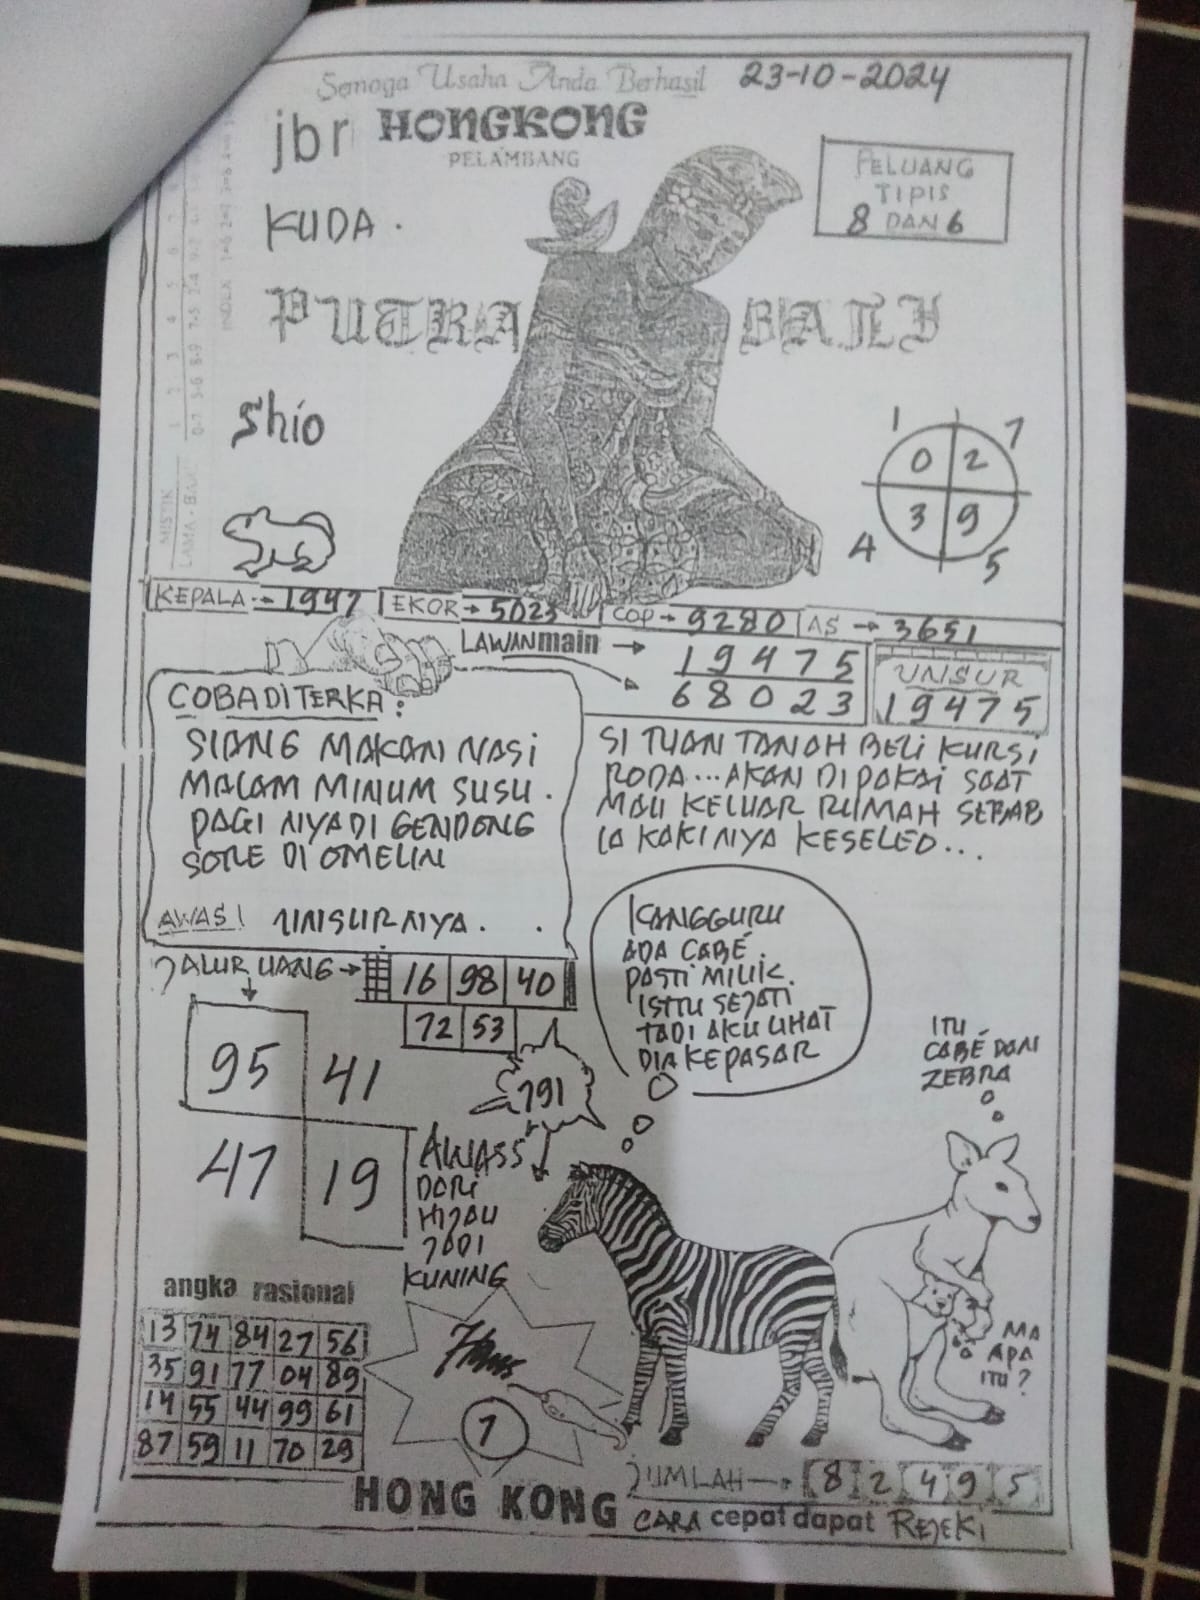 Semoga Usaha Anda Berhasil 23-10-2024
jbr HONGKONG
PELAMBANG
PELUANG
TIPIS
8 DAN 6
KUDA.
PUTRA BALI
Shio
MISTIK
LAMA - BARU
INDEX
1 7
0 2
3 9
4 5
KEPALA → 1947 EKOR → 5023 COP → 9280 AS → 3651
LAWAN main → 19475
68023
UNSUR
19475
COBA DITERKA:
SIANG MAKAN NASI
MALAM MINUM SUSU.
PAGI NYA DI GENDONG
SORE DI OMELIN
AWAS! UNSURNYA.
SI TUAN TANAH BELI KURSI
RODA...AKAN DI PAKAI SAAT
MAU KELUAR RUMAH SEBAB
IA KAKINYA KESELEO...
JALUR UANG → 16 98 40
72 53
95 41
47 19
791
KANGGURU
ADA CABÉ.
PASTI MILIK
ISTTU SEJATI
TADI AKU LIHAT
DIA KEPASAR
ITU
CABÉ DARI
ZEBRA
AWASS
DARI
HIJAU
JADI
KUNING
MA
APA
ITU?
angka rasional
13 74 84 27 56
35 91 77 04 89
14 55 44 99 61
87 59 11 70 29
7
JUMLAH → 8 2 4 9 5
HONG KONG CARA cepat dapat REJEKI